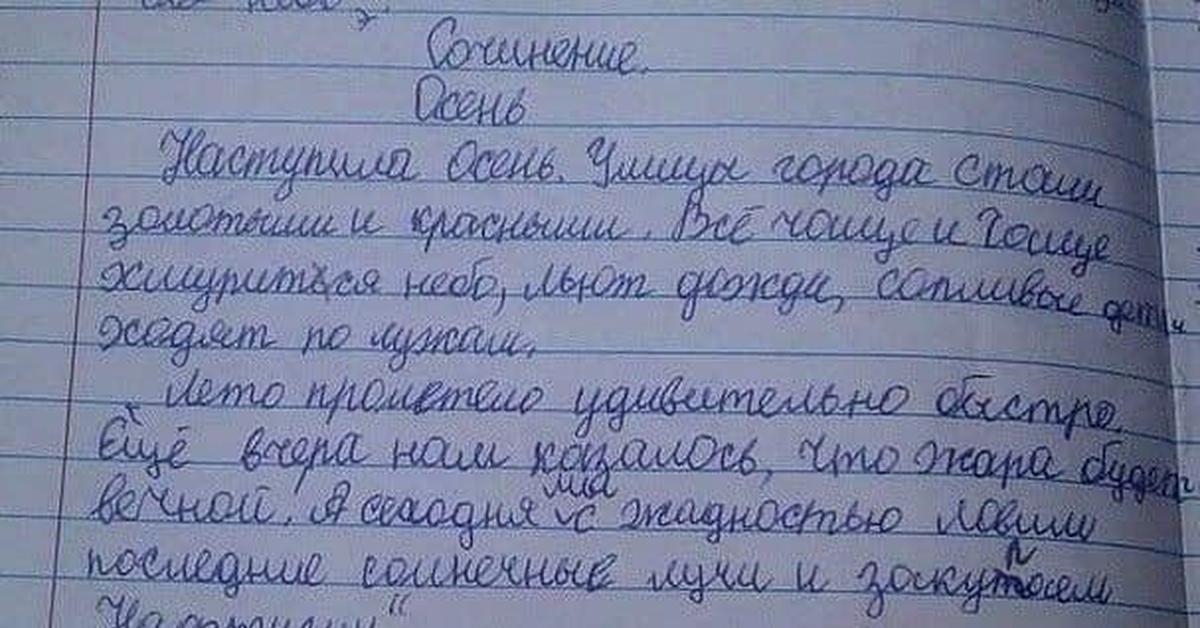 Сочинение.
Осень
Наступила осень. Улицы города стали
золотыми и красными. Всё чаще и чаще
хмурится небо, льют дожди, сопливые дети
ходят по лужам.
Лето пролетело удивительно быстро.
Ещё вчера нам казалось, что жара будет
вечной. А сегодня мы с жадностью ловим
последние солнечные лучи и закупаем